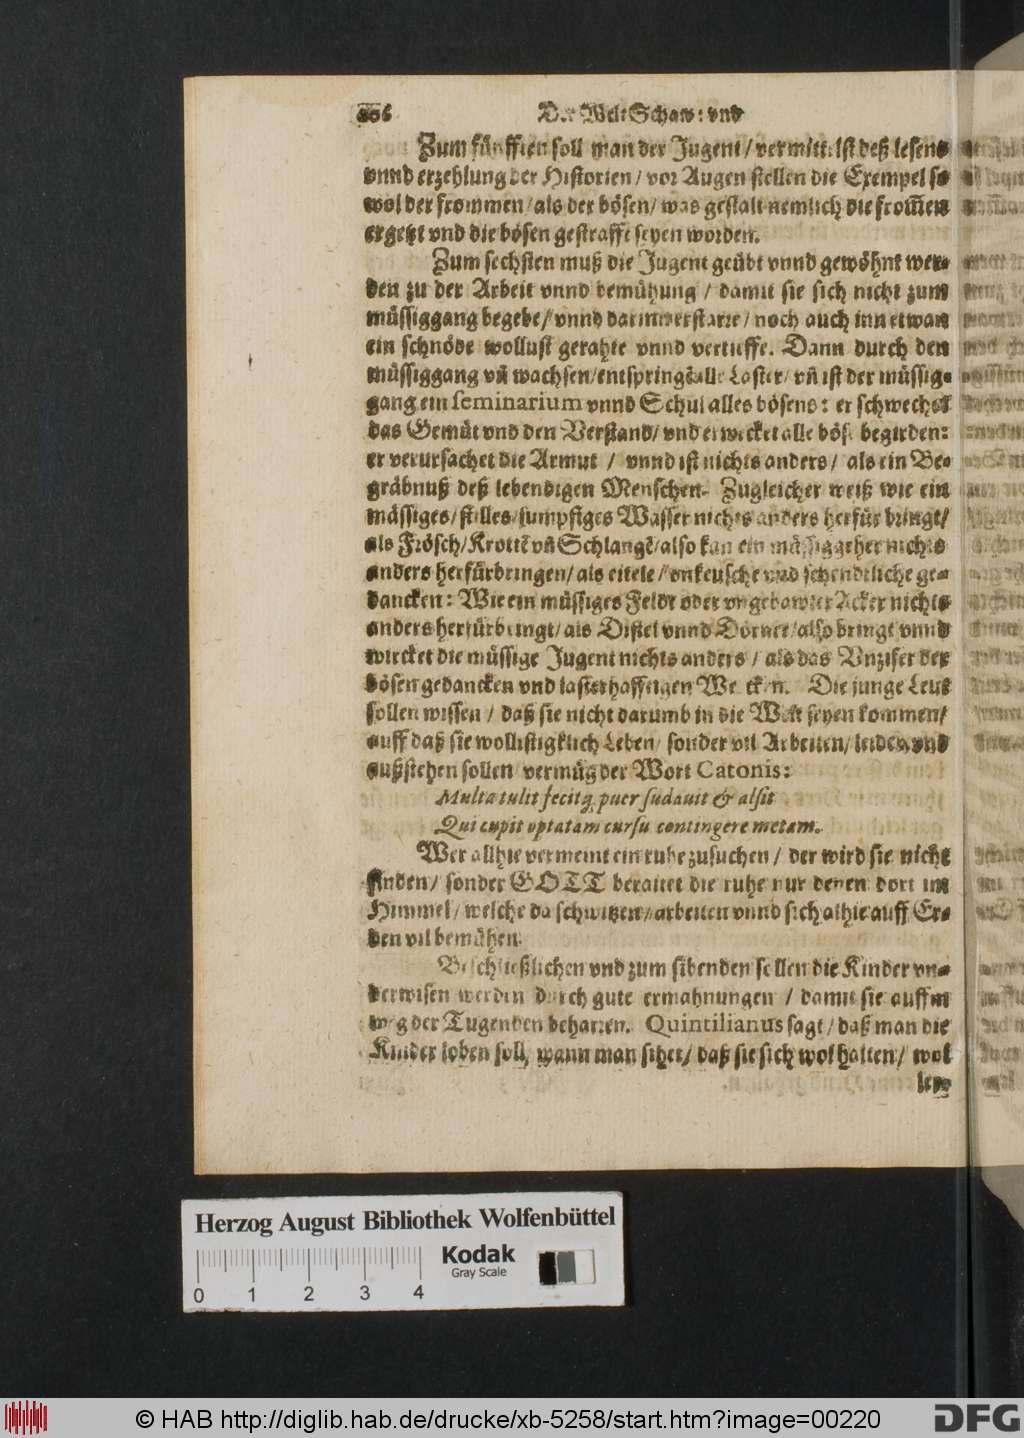 206 Der Welt Schaw: vnd
Zum fünfften soll man der Jugent / vermittelst deß lesens
vnnd erzehlung der Historien / vor Augen stellen die Exempel so
wol der frommen / als der bösen / was gestalt nemlich die from̃en
ergetzt vnd die bösen gestrafft seyen worden.
Zum sechsten muß die Jugent geübt vnnd gewöhnt wer-
den zu der Arbeit vnnd bemühung / damit sie sich nicht zum
müssiggang begebe / vnnd darinn erstarre / noch auch inn etwan
ein schnöde wollust gerahte vnnd vertieffe. Dann durch den
müssiggang vñ wachsen / entspringẽ alle Laster / vñ ist der müssig-
gang ein seminarium vnnd Schul alles bösens: er schwechet
das Gemüt vnd den Verstand / vnd erwecket alle böse begirden:
er verursachet die Armut / vnnd ist nichts anders / als ein Be-
gräbnuß deß lebendigen Menschen. Zugleicher weiß wie ein
mässiges / stilles / sumpfiges Wasser nichts anders herfür bringt /
als Frösch / Krottẽ vñ Schlangẽ / also kan ein müssiggeher nichts
anders herfürbringen / als eitele / vnkeusche vnd schendtliche ge-
dancken: Wie ein müssiges Feldt oder vngebawter Acker nichts
anders herfürbringt / als Distel vnnd Dörner / also bringt vnnd
wircket die müssige Jugent nichts anders / als das Vnzifer der
bösen gedancken vnd lasterhafftigen Wercken. Die junge Leut
sollen wissen / daß sie nicht darumb in die Welt seyen kommen /
auff daß sie wollistigklich Leben / sonder vil Arbeiten / leiden vnd
außstehen sollen / vermüg der Wort Catonis:
Multa tulit fecitq; puer sudauit & alsit
Qui cupit optatam cursu contingere metam.
Wer allhie vermeint ein ruhe zusuchen / der wird sie nicht
finden / sonder GOTT beraitet die ruhe nur denen dort im
Himmel / welche da schwitzen / arbeiten vnnd sich alhie auff Er-
den vil bemühen.
Beschließlichen vnd zum sibenden sollen die Kinder vn-
derwisen werden durch gute ermahnungen / damit sie auff m
weg der Tugenden beharren. Quintilianus sagt / daß man die
Kinder loben soll, wann man sihet / daß sie sich wol halten / wol
ler-
Herzog August Bibliothek Wolfenbüttel
Kodak
Gray Scale
0 1 2 3 4
© HAB http://diglib.hab.de/drucke/xb-5258/start.htm?image=00220
DFG